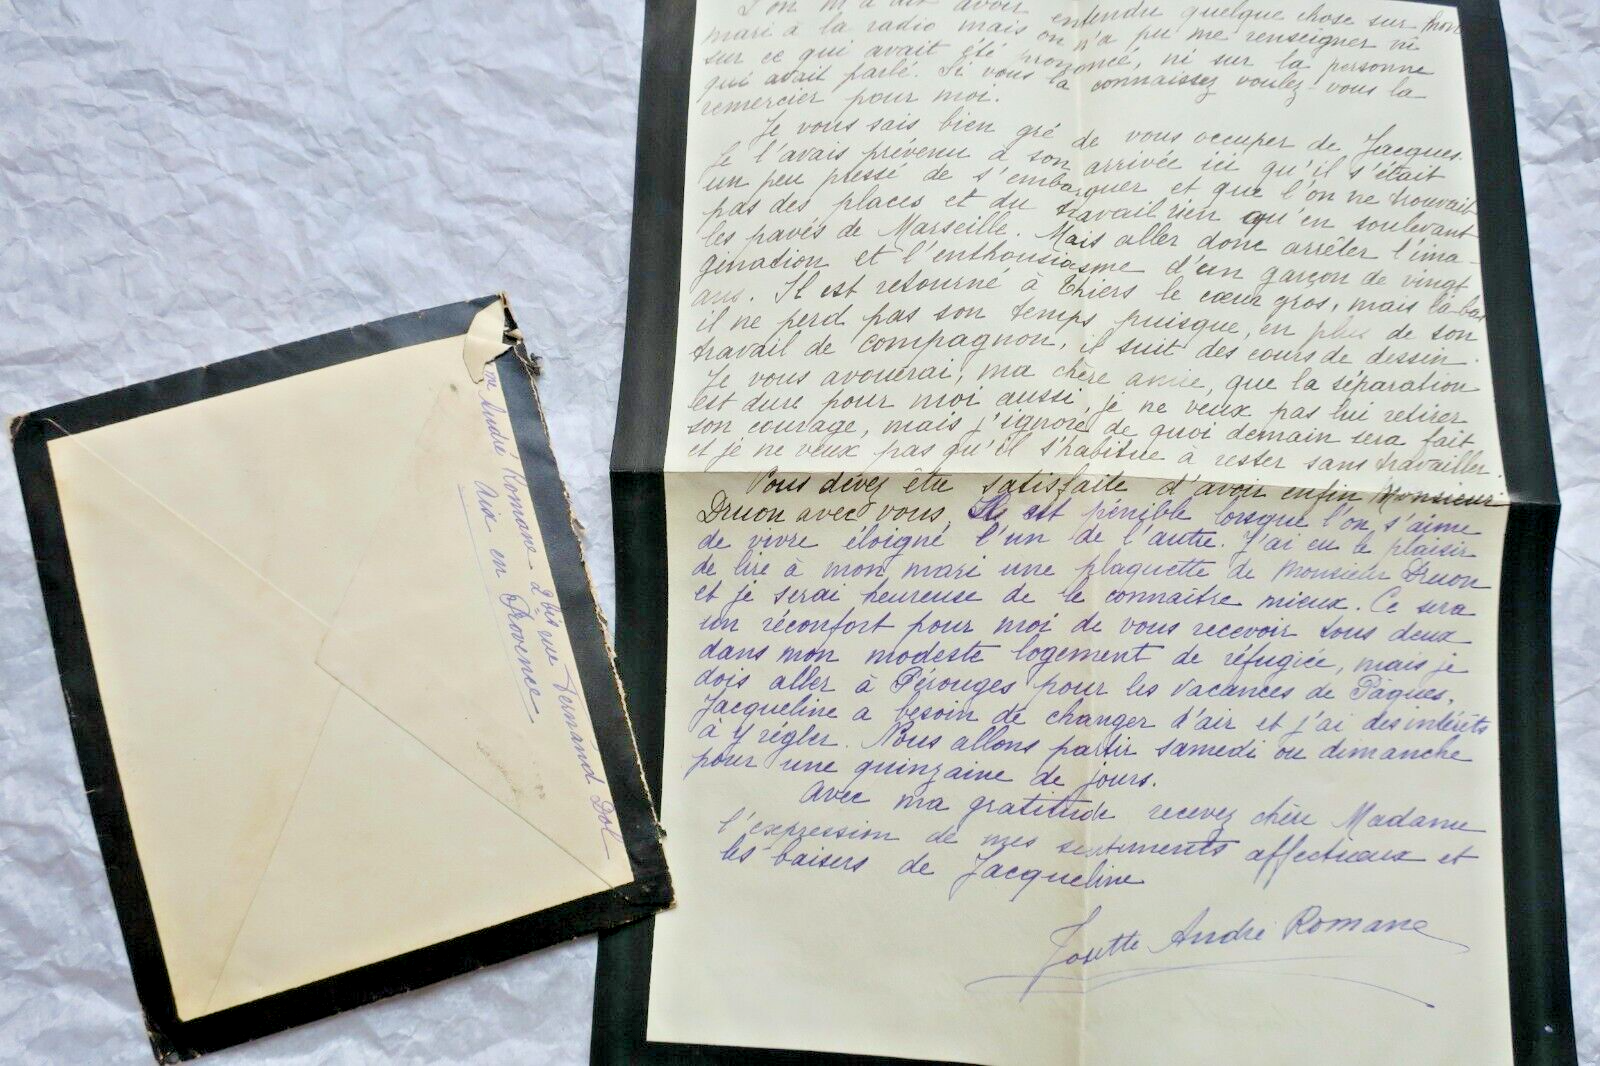 L'on m'a dit avoir entendu quelque chose sur mon
mari à la radio mais on n'a pu me renseigner ni
sur ce qui avait été prononcé, ni sur la personne
qui avait parlé. Si vous la connaissez voulez-vous la
remercier pour moi.
Je vous sais bien gré de vous occuper de Jacques.
Je l'avais prévenu à son arrivée ici qu'il s'était
un peu pressé de s'embarquer et que l'on ne trouvait
pas des places et du travail rien qu'en soulevant
les pavés de Marseille. Mais aller donc arrêter l'ima-
gination et l'enthousiasme d'un garçon de vingt
ans. Il est retourné à Thiers le cœur gros, mais là-bas
il ne perd pas son temps puisque, en plus de son
travail de compagnon, il suit des cours de dessin.
Je vous avouerai, ma chère amie, que la séparation
est dure pour moi aussi, je ne veux pas lui retirer
son courage, mais j'ignore de quoi demain sera fait
et je ne veux pas qu'il s'habitue à rester sans travailler.
Vous devez être satisfaite d'avoir enfin Monsieur
Druon avec vous. Il est pénible lorsque l'on s'aime
de vivre éloigné l'un de l'autre. J'ai eu le plaisir
de lire à mon mari une plaquette de Monsieur Druon
et je serai heureuse de le connaître mieux. Ce sera
un réconfort pour moi de vous recevoir tous deux
dans mon modeste logement de réfugiée, mais je
dois aller à Pérouges pour les vacances de Pâques,
Jacqueline a besoin de changer d'air et j'ai des intérêts
à y régler. Nous allons partir samedi ou dimanche
pour une quinzaine de jours.
Avec ma gratitude recevez chère Madame
l'expression de mes sentiments affectueux et
les baisers de Jacqueline
Josette André Romane
me André Romane 2 bis rue Fernand Dol
Aix en Provence